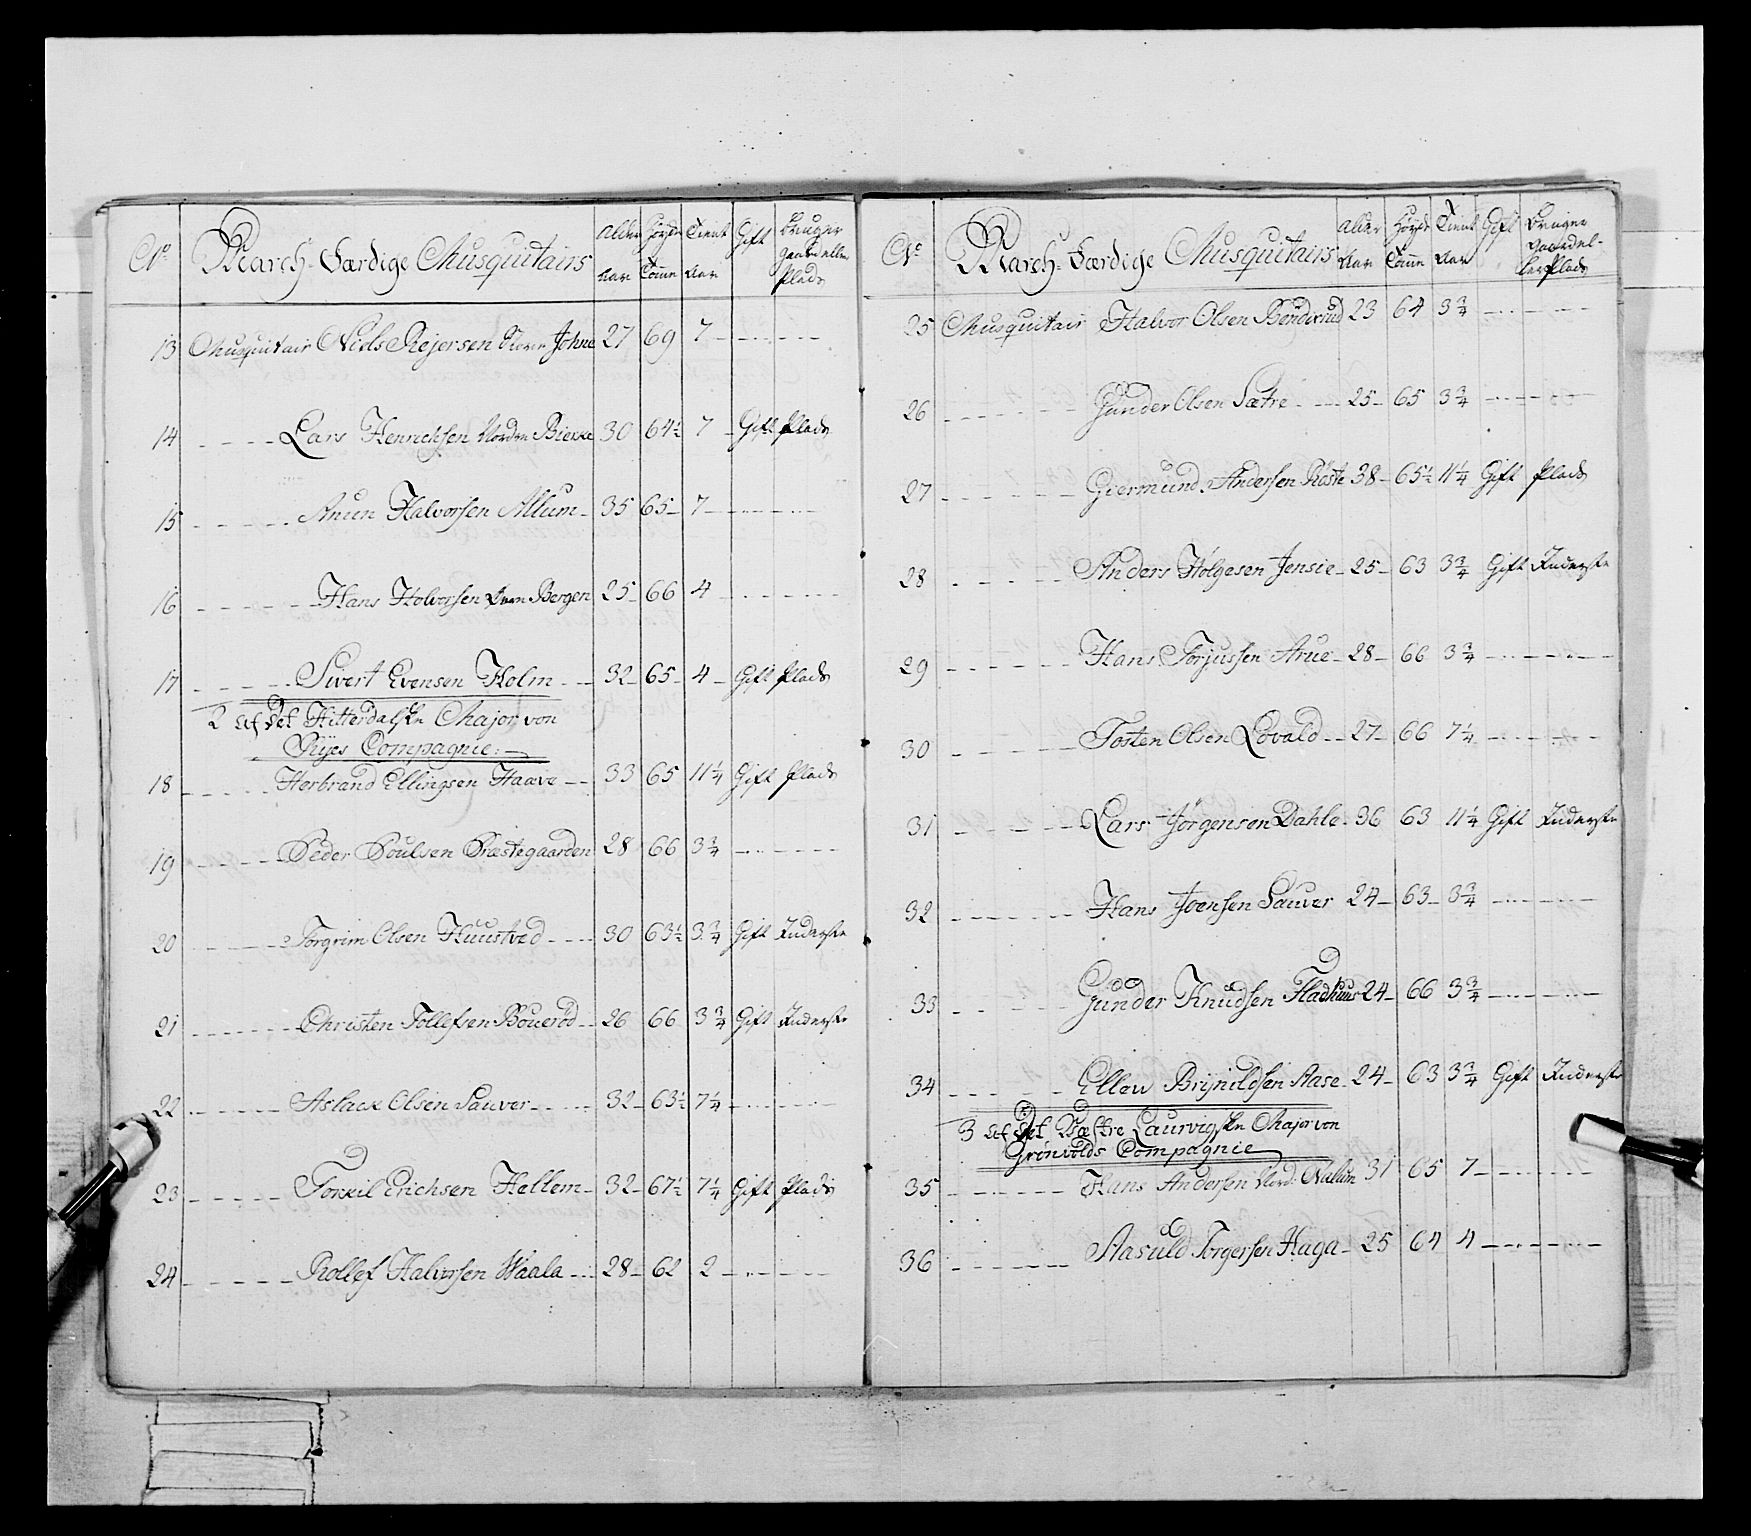 No March-Færdige Musquitairs Alder Aar Høyde Tome Tient Aar Gift Bruger Gaard eller Plads
13 Musquitair Niels Rejersen Johne 27 69 7 - - -
14 - - - Lars Henrichsen Nordre Bierke 30 64½ 7 - Gift Plads
15 - - - Anun Halvorsen Allum - 35 65 - 7 - - -
16 - - - Hans Holvorsen Bergen 25 - 66 4 - - -
17 - - - Sivert Evensen Holm - - 32 - 65 - 4 - Gift Plads
2 Af Det Hitterdalske Major von
Rijes Compagnie:
18 - - - Herbrand Ellingsen Haave - - 33 65 11¼ Gift Plads
19 - - - Peder Poulsen Præstegaarden 28 66 3¼ - - -
20 - - - Torgrim Olsen Huustved - - - 30 63½ 3¾ Gift Inderste
21 - - - Christen Tollefsen Bouerød - - 26 66 3¾ Gift Inderste
22 - - - Aslack Olsen Sauver - - - 32 - 63½ 7¼ - - -
23 - - - Torkil Erichsen Hellem - 32 - 67½ 7¼ Gift Plads
24 - - - Rollef Halvorsen Waala - - 28 - 62 2 - - -
No March-Færdige Musquitairs Alder Aar Høyde Tome Tient Aar Gift Bruger Gaard eller Plads
25 Musquitair Halvor Olsen Bonderud 23 64 3¾ - - -
26 - - - Gunder Olsen Sætre - - 25 - 65 3¾ - - -
27 - - - Giermund Andersen Röste 38 - 65½ 11¼ Gift Plads
28 - - - Anders Holgesen Jensie - 25 - 63 3¾ Gift Inderste
29 - - - Hans Torjussen Arue - 28 - 66 3¾ - - -
30 - - - Tosten Olsen Lovald - - 27 - 66 7¼ - - -
31 - - - Lars Jörgensen Dahle - 36 63 11¼ Gift Inderste
32 - - - Hans Joensen Sauver 24 - 63 - 3¾ - - -
33 - - - Gunder Knudsen Fladhuus 24 - 66 3¾ - - -
34 - - - Ellev Brijnildsen Aase - 24 - 63 3¾ Gift Inderste
3 Af Det Wæstre Laurvigske Major von
Grönvolds Compagnie
35 - - - Hans Andersen Nord: Nalum 31 65 7 - - -
36 - - - Aasuld Torgersen Haga - 25 64 4 - - -